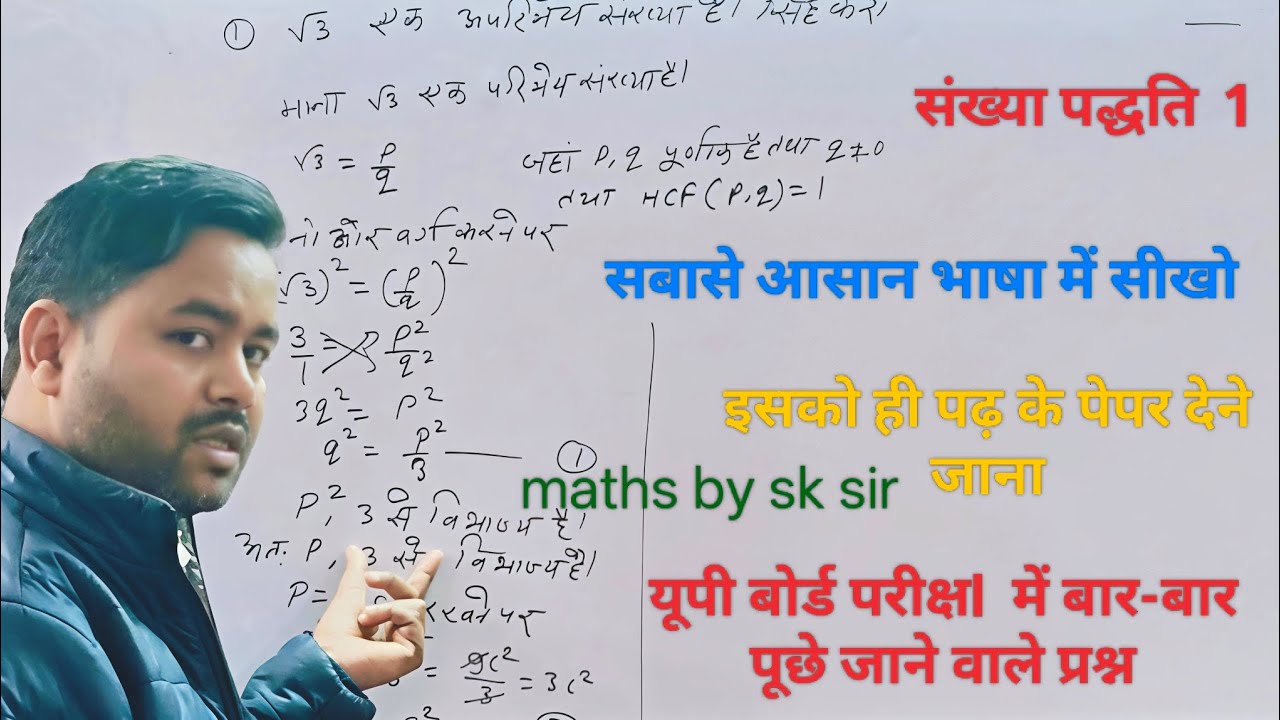 ① √3 एक अपरिमेय संख्या है। सिद्ध करो
माना √3 एक परिमेय संख्या है।
√3 = P/q जहां P, q पूर्णांक है तथा q≠0
तथा HCF (P,q) = 1
नो ओर वर्ग करने पर
√3)² = (P/q)²
3/1 = P²/q²
3q² = P²
q² = P²/3 —— ①
P², 3 से विभाज्य है।
अतः P, 3 से विभाज्य है।
P=
रखने पर
= 9c²/3 = 3c²
संख्या पद्धति 1
सबासे आसान भाषा में सीखो
इसको ही पढ़ के पेपर देने
जाना
maths by sk sir
यूपी बोर्ड परीक्षा में बार-बार
पूछे जाने वाले प्रश्न